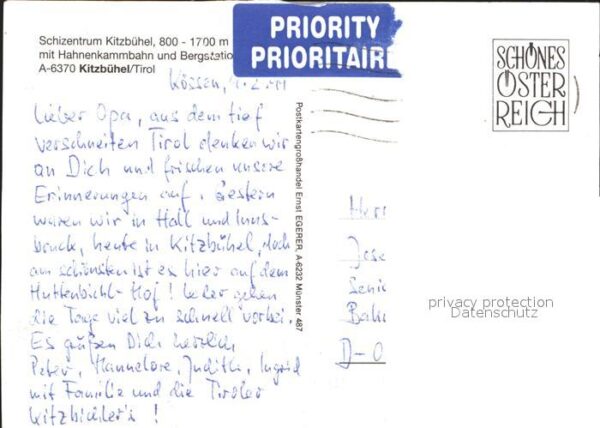 PRIORITY
PRIORITAIRE
Schizentrum Kitzbühel, 800 - 1700 m
mit Hahnenkammbahn und Bergstatio
A-6370 Kitzbühel/Tirol
SCHÖNES
ÖSTER
REICH
Kössen,
Lieber Opa, aus dem tief
verschneiten Tirol denken wir
an Dich und frischen unsere
Erinnerungen auf. Gestern
waren wir in Hall und Inns-
bruck, heute in Kitzbühel, doch
am schönsten ist es hier auf dem
Hüttenbichl-Hof! Leider gehen
die Tage viel zu schnell vorbei.
Es grüßen Dich herzlich
Peter, Hannelore, Judith, Ingrid
mit Familie und die Tiroler
Kitzbichler's!
Postkartengroßhandel Ernst EGERER, A-6232 Münster 487
Herr
Jose
Senio
D-0
privacy protection
Datenschutz